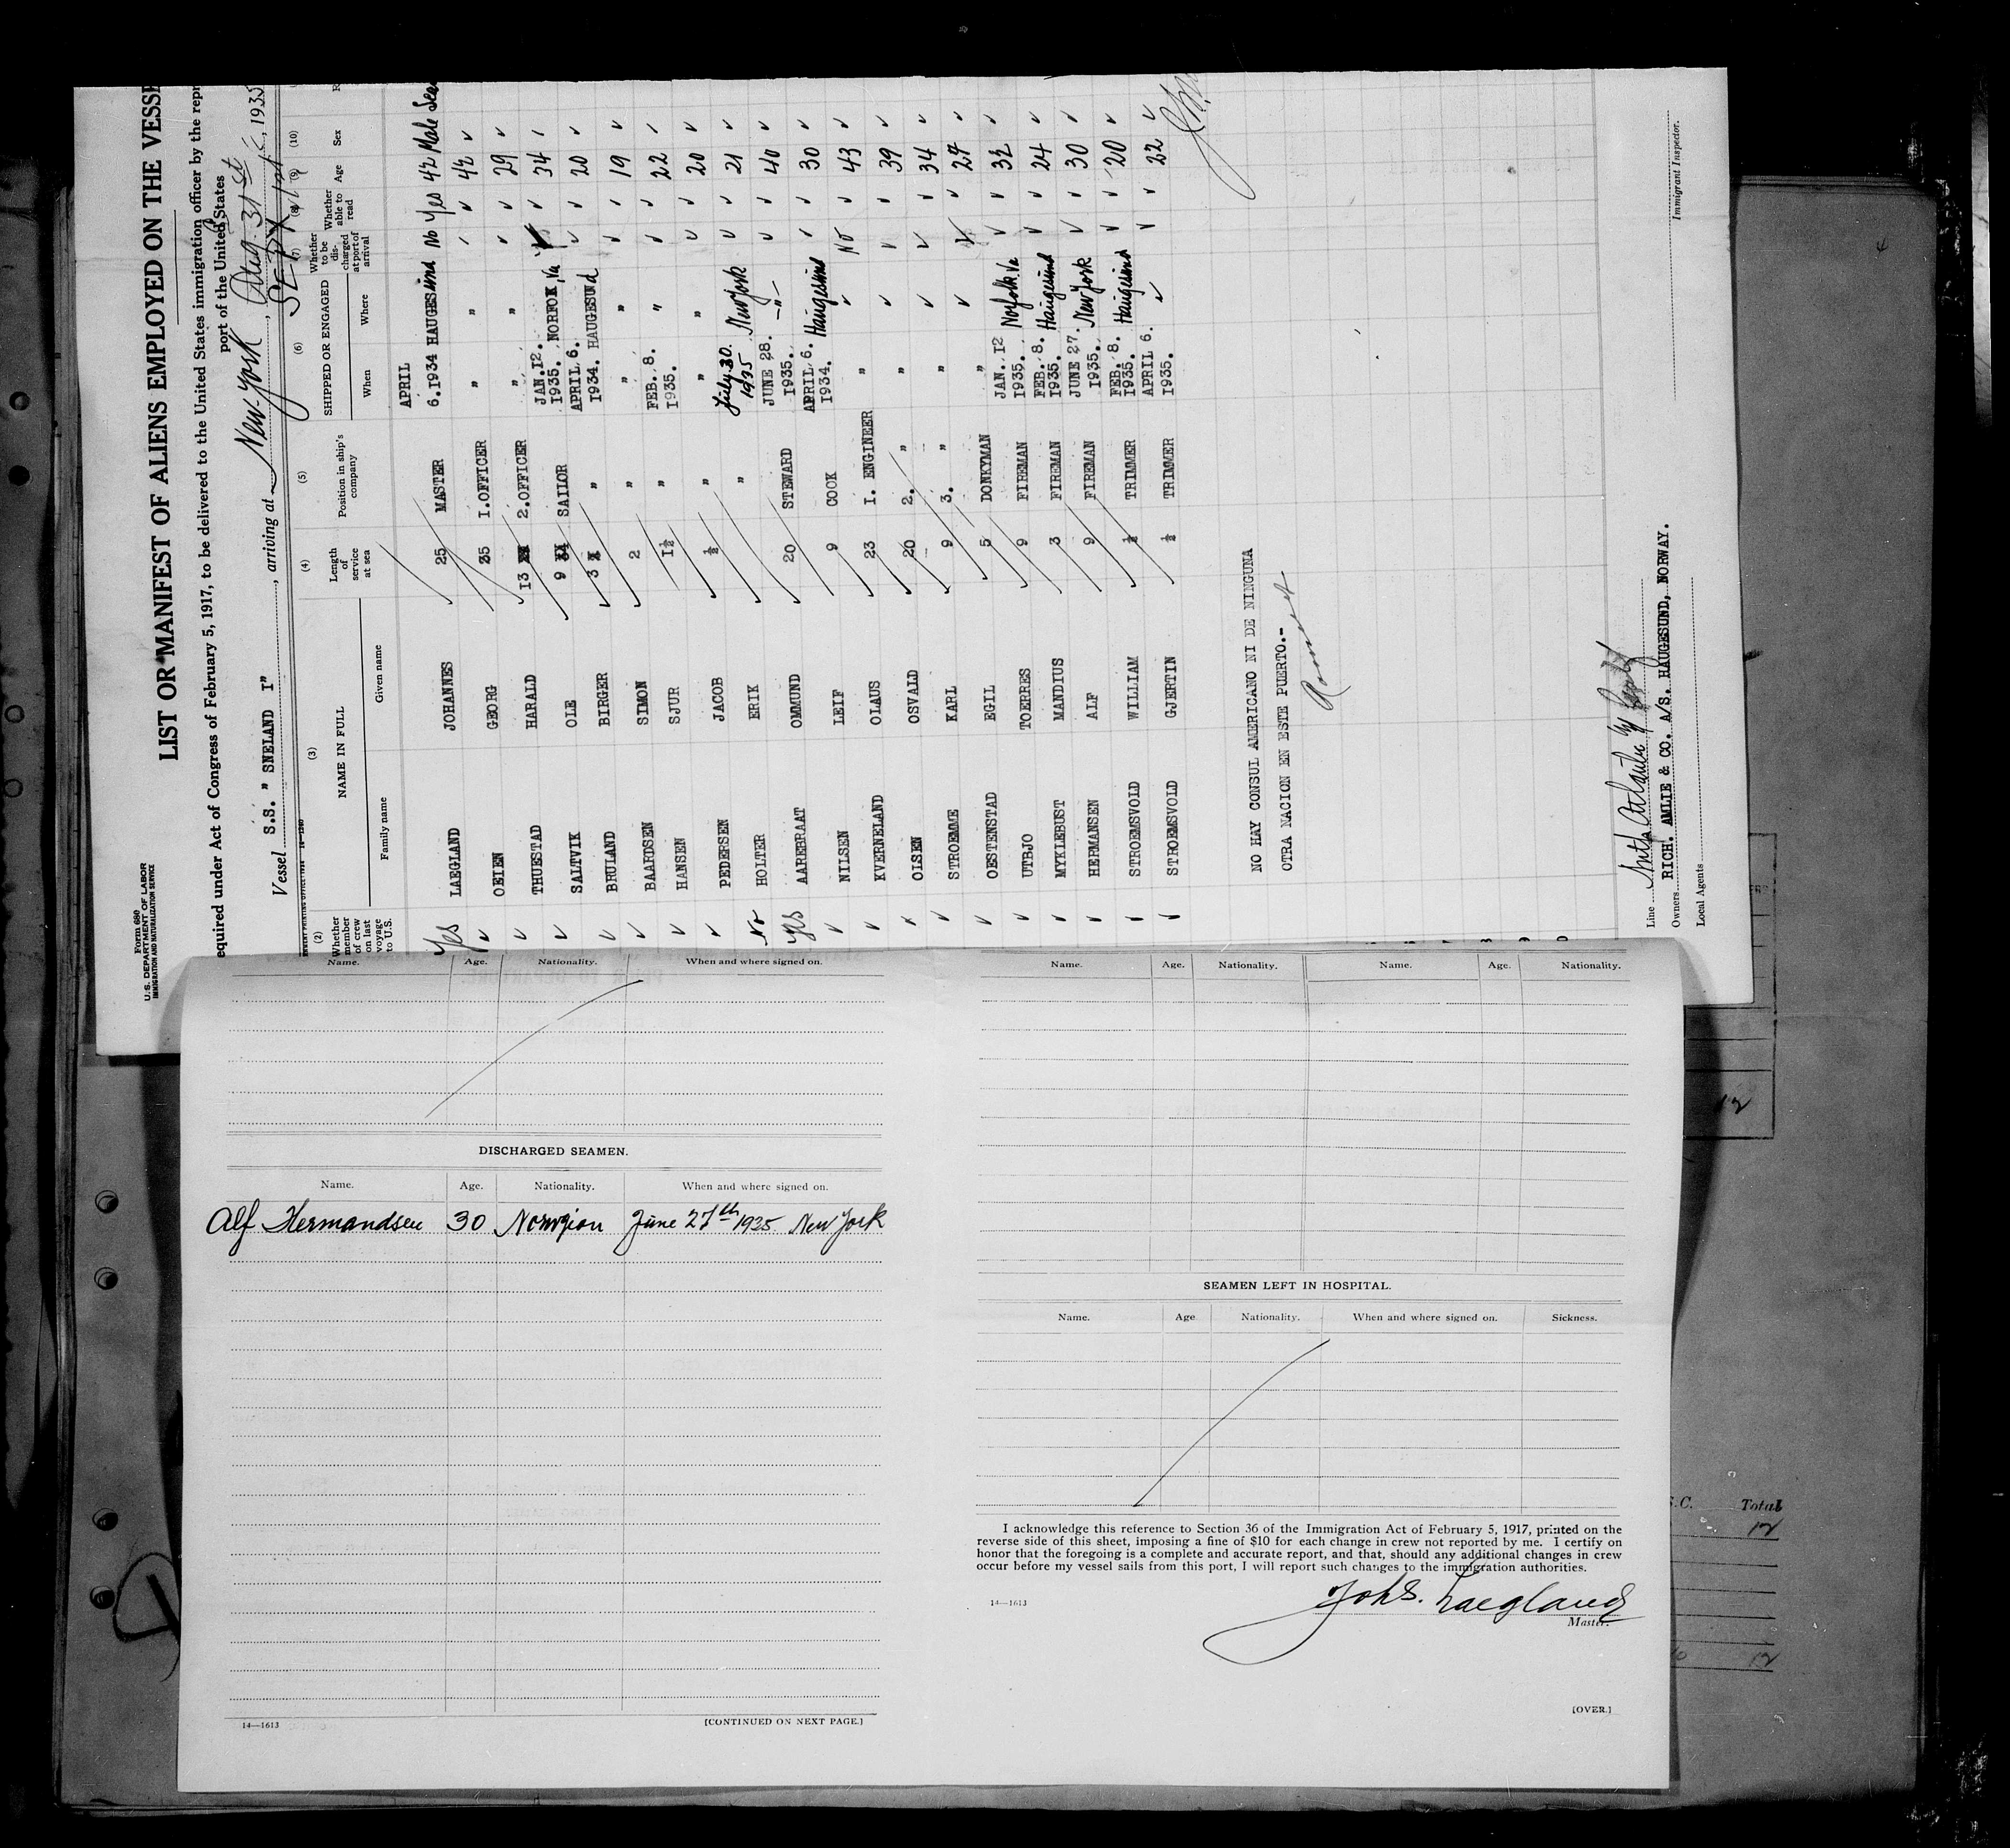 Form 680
U.S. DEPARTMENT OF LABOR
IMMIGRATION AND NATURALIZATION SERVICE
LIST OR MANIFEST OF ALIENS EMPLOYED ON THE VESSE
equired under Act of Congress of February 5, 1917, to be delivered to the United States immigration officer by the repr
port of the United States
Vessel S.S. " SNELAND I" , arriving at New-York , Aug. 31st , 1935
(2) (3) (4) (5) (6) (7) (8) (9) (10)
Whether member of crew on last voyage to U.S. NAME IN FULL Length of service at sea Position in ship's company SHIPPED OR ENGAGED Whether to be discharged at port of arrival Whether able to read Age Sex R
Family name Given name When Where
Yes LAEGLAND JOHANNES 25 MASTER APRIL 6.1934 HAUGESUND No Yes 42 Male
✓ OEIEN GEORG 25 I.OFFICER " " 42 ✓
✓ THUESTAD HARALD 13 2.OFFICER " " ✓ ✓ 29 ✓
✓ SALTVIK OLE 9 SAILOR JAN.12. 1935. NORFOK, Va ✓ 34
✓ BRULAND BIRGER 3 " APRIL 6. 1934. HAUGESUND ✓ ✓ 20 ✓
✓ BAARDSEN SIMON 2 " " " 19 ✓
✓ HANSEN SJUR 1½ " FEB. 8. 1935. " ✓ ✓ 22
✓ PEDERSEN JACOB ½ " " " ✓ ✓ 20 ✓
No HOLTER ERIK " July 30. 1935 New York ✓ ✓ 21 ✓
Yes AAREBRAAT OMMUND 20 STEWARD JUNE 28. 1935. -"- ✓ ✓ 40 ✓
✓ NILSEN LEIF 9 COOK APRIL 6. 1934. Haugesund ✓ ✓ 30 ✓
✓ KVERNELAND OLAUS 23 I. ENGINEER " ✓ NO ✓ 43 ✓
✓ OLSEN OSVALD 20 2. " " ✓ ✓ ✓ 39 ✓
✓ STROEMME KARL 9 3. " " ✓ ✓ ✓ 34 ✓
✓ OESTENSTAD EGIL 5 DONKYMAN " ✓ ✓ ✓ 27 ✓
✓ UTBJO TOERRES 9 FIREMAN JAN. 12 1935. Norfolk. Va ✓ ✓ 32 ✓
✓ MYKLEBUST MANDIUS 3 FIREMAN FEB. 8. 1935. Haugesund ✓ ✓ 24 ✓
✓ HERMANSEN ALF 9 FIREMAN JUNE 27. 1935. New York ✓ ✓ 30 ✓
✓ STROEMSVOLD WILLIAM ½ TRIMMER FEB. 8. 1935. Haugesund ✓ ✓ 20 ✓
✓ STROEMSVOLD GJERTIN ½ TRIMMER APRIL 6. 1935. ✓ ✓ ✓ 22 ✓
NO HAY CONSUL AMERICANO NI DE NINGUNA
OTRA NACION EN ESTE PUERTO.-
Line
Owners RICH. AMLIE & CO. A/S. HAUGESUND, NORWAY.
Local Agents
Immigrant Inspector.
Name. Age. Nationality. When and where signed on.
DISCHARGED SEAMEN.
Name. Age. Nationality. When and where signed on.
Alf Hermandsen 30 Norwgion June 27th 1935 New York
14—1613 [CONTINUED ON NEXT PAGE.]
Name. Age. Nationality. Name. Age. Nationality.
SEAMEN LEFT IN HOSPITAL.
Name. Age Nationality. When and where signed on. Sickness.
I acknowledge this reference to Section 36 of the Immigration Act of February 5, 1917, printed on the
reverse side of this sheet, imposing a fine of $10 for each change in crew not reported by me. I certify on
honor that the foregoing is a complete and accurate report, and that, should any additional changes in crew
occur before my vessel sails from this port, I will report such changes to the immigration authorities.
Johs. Laegland
14—1613 Master.
[OVER.]
S.C. Total
12
12
12